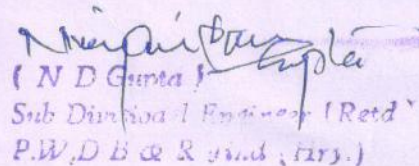 Gupta
( N D Gupta )
Sub Divisional Engineer (Retd
P.W,D B & R Hry.)